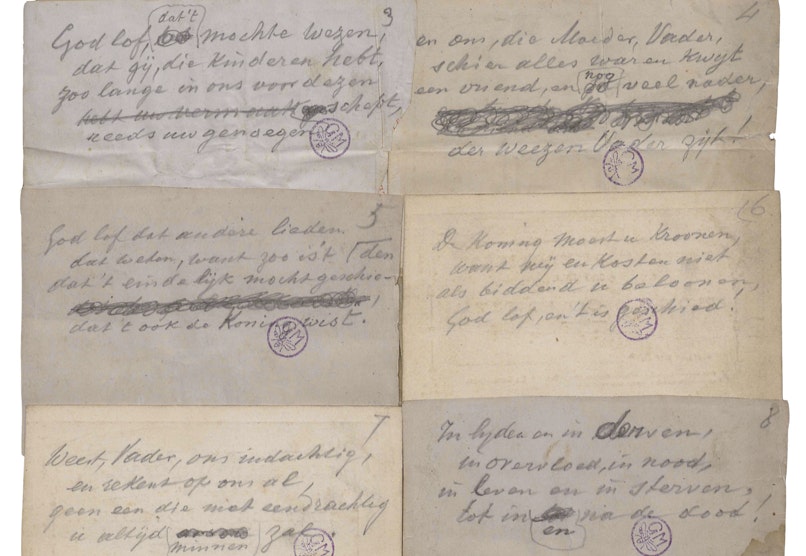 3
dat't
God lof, mochte wezen,
dat gij, die kinderen hebt,
zoo lange in ons voordezen
hebt uw vermaak geschept,
reeds uw genoegen
GM
4
en ons, die Moeder, Vader,
schier alles waren kwijt
een vriend, en nog veel nader,
der weezen Vader zijt!
GM
5
God lof dat andere lieden
dat weten, want zoo is't (den
dat't eindelijk mocht geschie-
dat't ook de Koning wist.
GM
6
De Koning moest u kroonen,
want wij en kosten niet
als biddend u beloonen,
God lof, en 't is geschied!
GM
7
Weest, Vader, ons indachtig,
en rekent op ons al,
geen een die niet eendrachtig
u altijd zal.
minnen
GM
8
In lijden en in derven,
in overvloed, in nood,
in leven en in sterven,
tot in via de dood!
en
GM